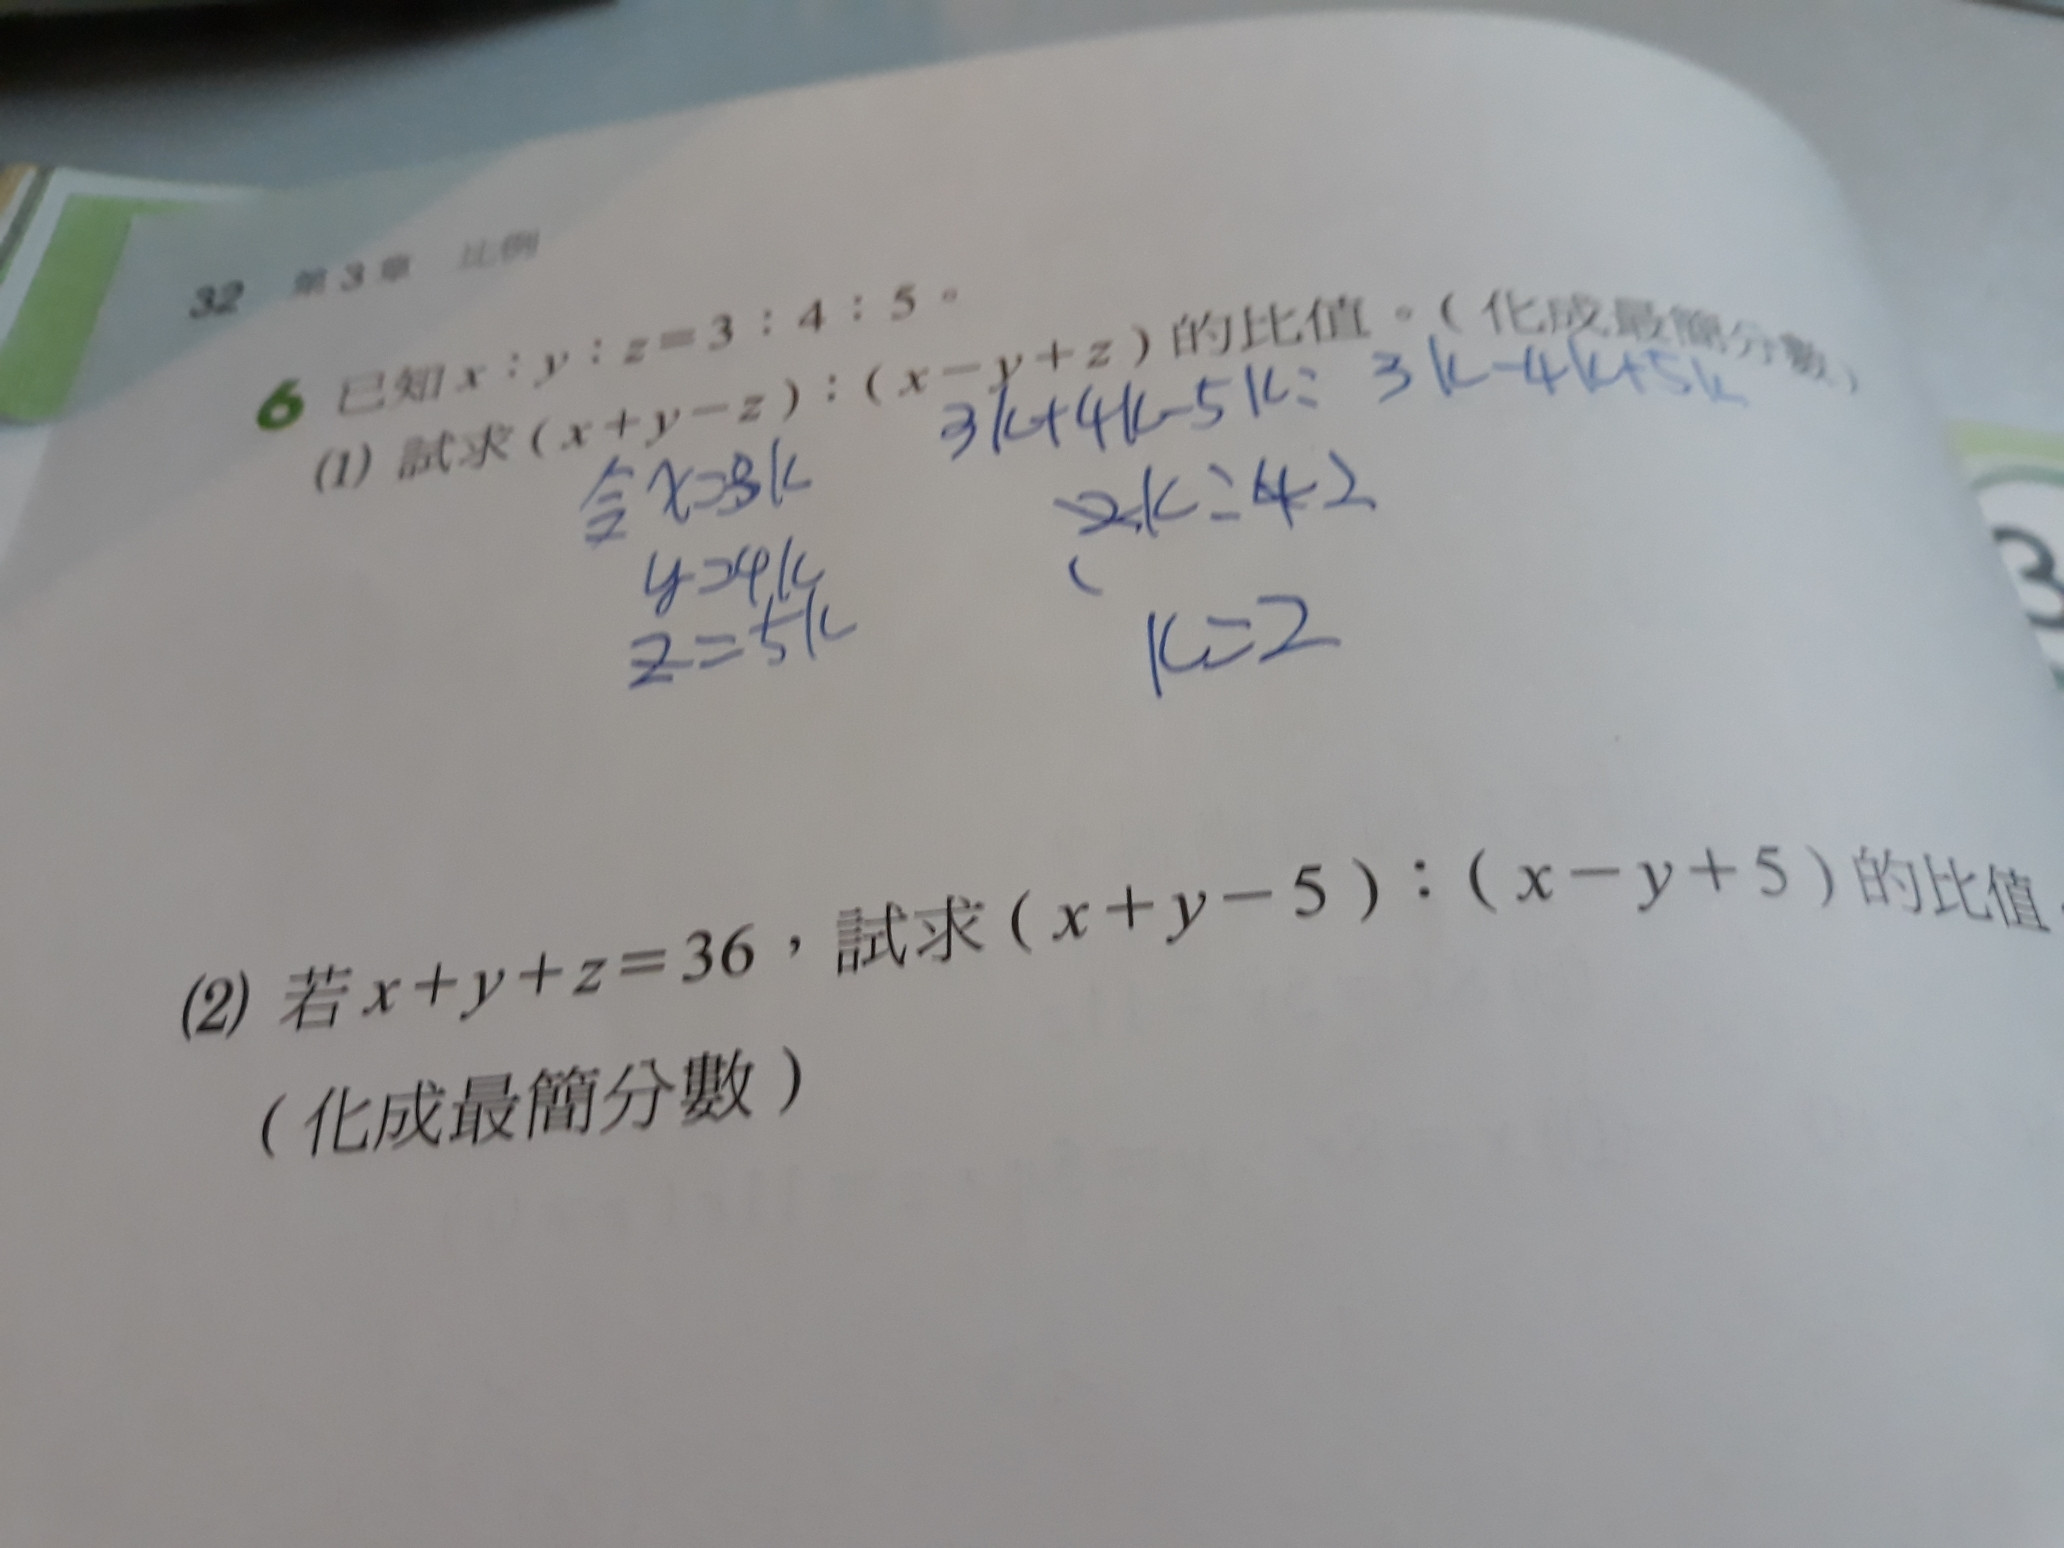 32 第3章 比例
6 已知x：y：z＝3：4：5。
(1) 試求（x＋y－z）：（x－y＋z）的比值。（化成最簡分數）
3k+4k-5k= 3k-4k+5k
令 x=3k
y=4k
z=5k
k=2
(2) 若x＋y＋z＝36，試求（x＋y－5）：（x－y＋5）的比值
（化成最簡分數）
3